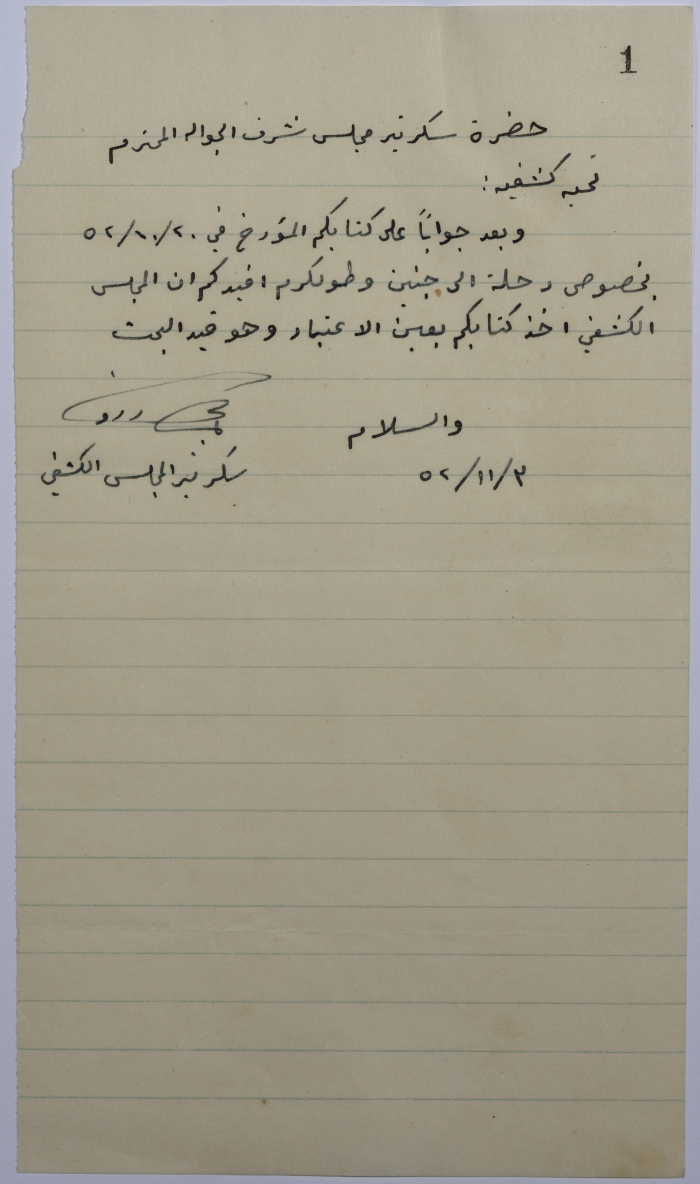 1
حضرة سكرتير مجلس شرف الجواله المحترم
تحيه كشفيه :
وبعد جواباً على كتابكم المؤرخ في ٥٢/١٠/٢٠
بخصوص رحلة الى جنين وطولكرم افيدكم ان المجلس
الكشفي اخذ كتابكم بعين الاعتبار وهو قيد البحث
والسلام
٥٢/١١/٣
سكرتير المجلس الكشفي